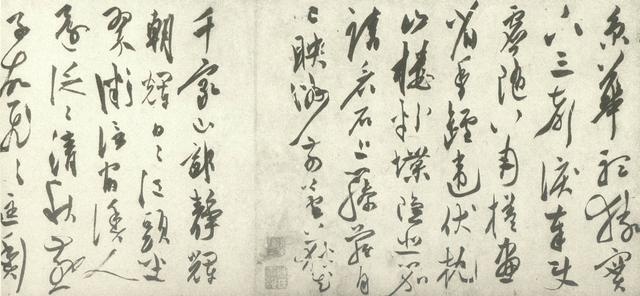 京華聽猿實
下三聲淚奉使
虛隨八月槎畫
省香爐違伏枕
山樓粉堞隱悲笳
請看石上藤蘿月
已映洲前蘆荻花
千家山郭靜輝
朝輝日〻江頭坐
翠微信宿漁人
還泛〻清秋燕
子故飛〻匡衡